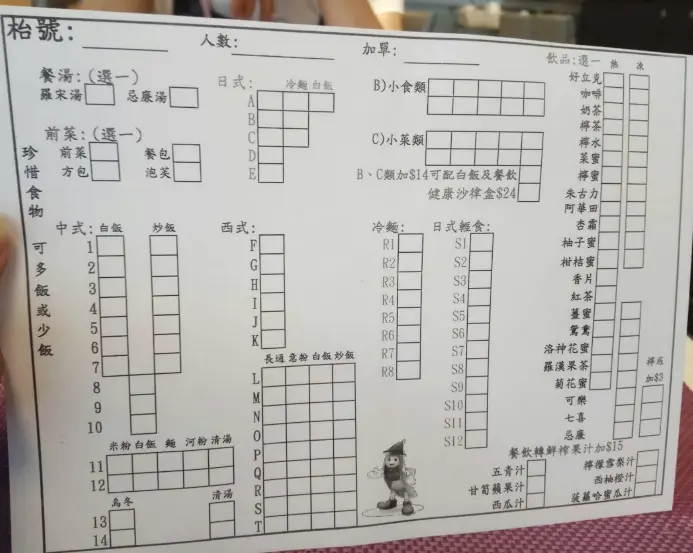 枱號:
人數:
加單:
餐湯:(選一)
羅宋湯 忌廉湯
前菜:(選一)
前菜 餐包
方包 泡芙
珍惜食物 可多飯或少飯
日式: 冷麵 白飯
A
B
C
D
E
B)小食類
C)小菜類
B、C類加$14可配白飯及餐飲
健康沙律盒$24
中式: 白飯 炒飯
1
2
3
4
5
6
7
8
9
10
米粉 白飯 麵 河粉 清湯
11
12
烏冬 清湯
13
14
西式:
F
G
H
I
J
K
長通 意粉 白飯 炒飯
L
M
N
O
P
Q
R
S
T
冷麵:
R1
R2
R3
R4
R5
R6
R7
R8
日式輕食:
S1
S2
S3
S4
S5
S6
S7
S8
S9
S10
S11
S12
飲品:選一 熱 凍
好立克
咖啡
奶茶
檸茶
檸水
菜蜜
檸蜜
朱古力
阿華田
杏霜
柚子蜜
柑桔蜜
香片
紅茶
薑蜜
鴛鴦
洛神花蜜
羅漢果茶
菊花蜜
可樂
七喜
忌廉
加$3
餐飲轉鮮榨果汁加$15
五青汁 檸檬雪梨汁
甘筍蘋果汁 西柚橙汁
西瓜汁 菠蘿哈蜜瓜汁